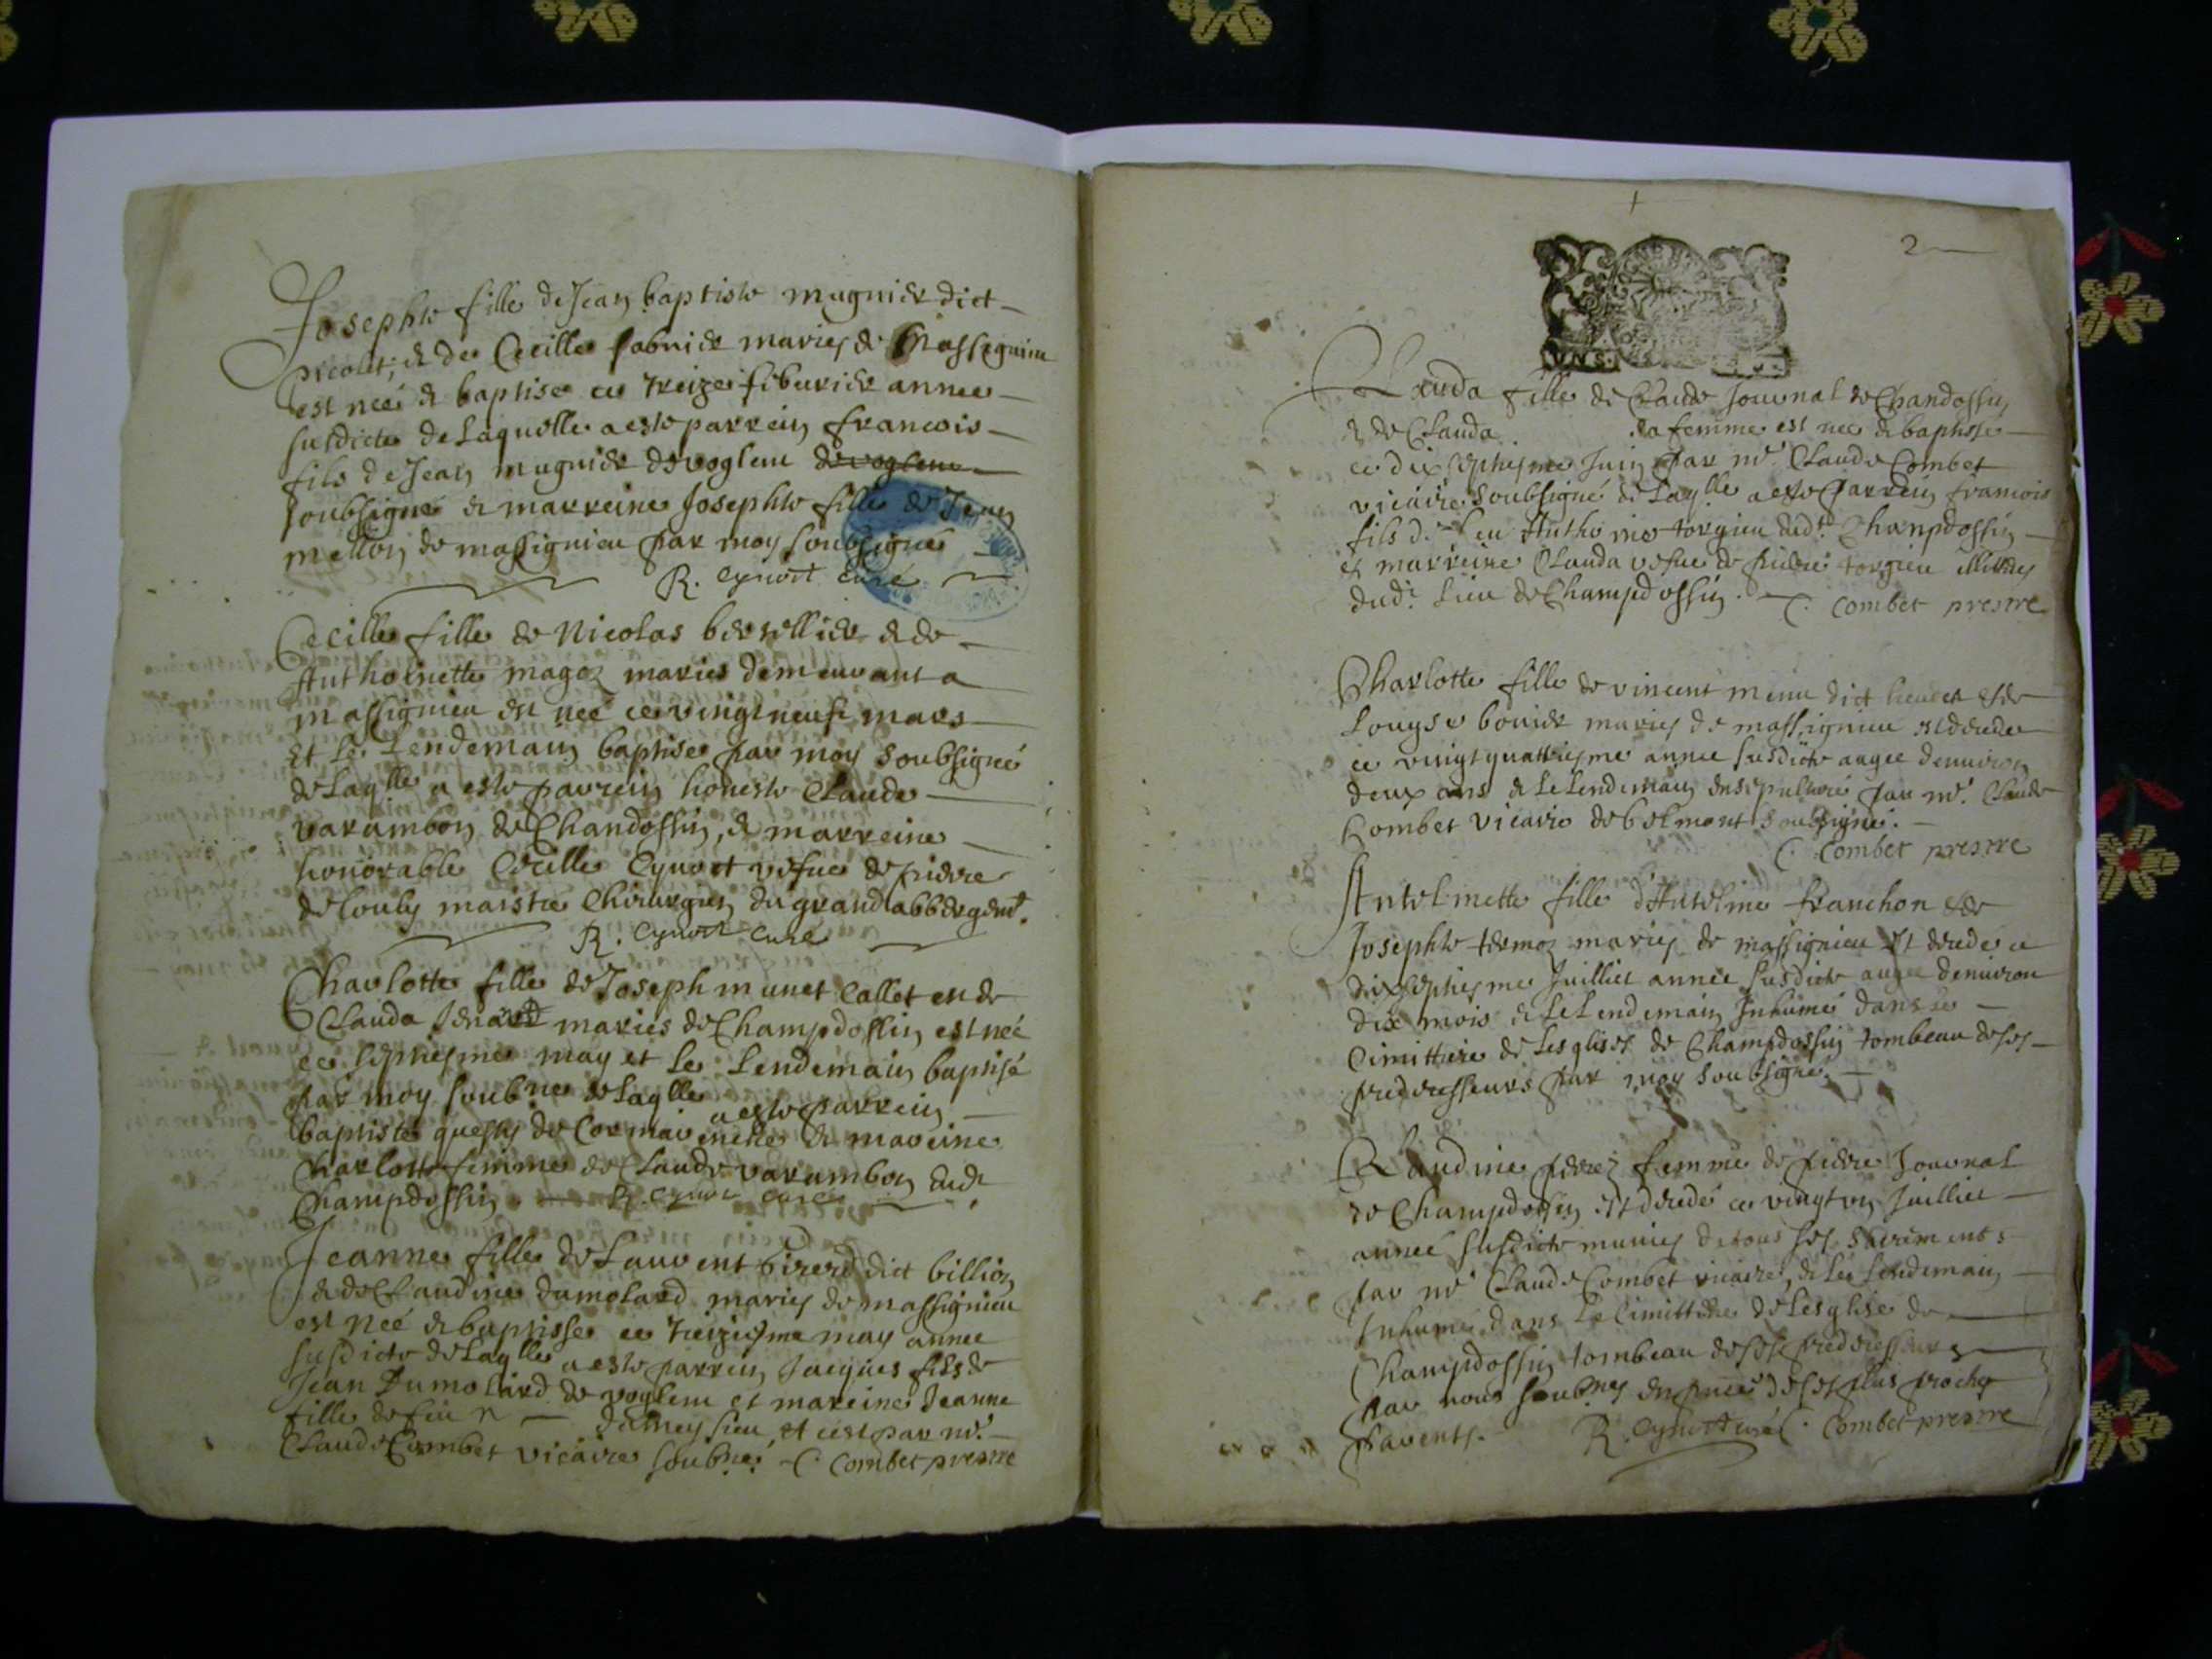 Josephte fille de Jean baptiste mugnier dict
picolet, & de Cecille fabvier mariés de Massegnieu
est née & baptisée ce treize feburier annee
susdicte de Laquelle a este parrein francois
fils de Jean mugnier de voglenu de voglenu
soubsigné & marreine Josephte fille de Jean
mellon de massignieu par moy soubsigné
R. Cynoct curé
Cecille fille de Nicolas berellier & de
Anthoinette magoz maries demeurant a
massignieu est neé ce vingt neufi mars
et le Lendemain baptisée par moy soubsigné
de Laqlle a este parrein honeste Claude
varambon de Chandossin, & marreine
honorable Cecille Cynoct vefue de pierre
de louly maistre Chirurgien du grand abbergemt.
R. Cynoct curé
Charlotte fille de Joseph munet Callet et de
Clauda maries de Champdossin est neé
ce septiesme may et le Lendemain baptisé
par moy soubne de Laqlle a este parrein
baptiste de & mareine
Charlotte femme de Claude varambon dudt
Champdossin R. Cynoct curé
Jeanne fille de Laurent birerd dict billion
& de Claudine dumolard mariés de massignieu
est neé & baptisse ce treiziesme may annee
susdicte de Laqlle a este parrein Jacques fils de
Jean Dumolard de voglenu et mareine Jeanne
fille de feu n dumey lieu, et cest par mre
Claude Combet vicaire soubné C. Combet prestre
2
Clauda fille de Claude Journal de Chandossin
& de Clauda sa femme est nee & baptisée
ce dix septiesme Juin par mre Claude Combet
vicaire soubsigné de Laqlle a este parrein francois
fils de feu Anthoine torgieu dudt Champdossin
et marreine Clauda vefue de pierre torgieu
dudt lieu de Champdossin. C. Combet prestre
Charlotte fille de vincent menu dict & de
Louyse bouier mariés de massignieu est decedee
ce vingt quattriesme annee susdicte aagee denuiron
deux ans & le Lendemain ensepulturé par mre Claude
Combet vicaire de belmont soubsigné.
C. Combet prestre
Antelmette fille d'Antelme franchon & de
Josephte termoz mariés de massignieu est decedee ce
dixseptiesme Juilliet annee susdicte aagee denuiron
dix mois & le Lendemain Inhumé dans le
Cimittiere de Lesglise de Champdossin tombeau de ses
predecesseurs par moy soubsigné.
Claudine perrez femme de pierre Journal
de Champdossin est decedé ce vingt vn Juilliet
année susdicte munies de tous ses sacrements
par mre Claude Combet vicaire, & le Lendemain
Inhumé dans le Cimittiere de Lesglise de
Champdossin tombeau de ses predecesseurs
par nous soubnes en pnce de ses plus proche
parents. R. Cynoct curé C. Combet prestre